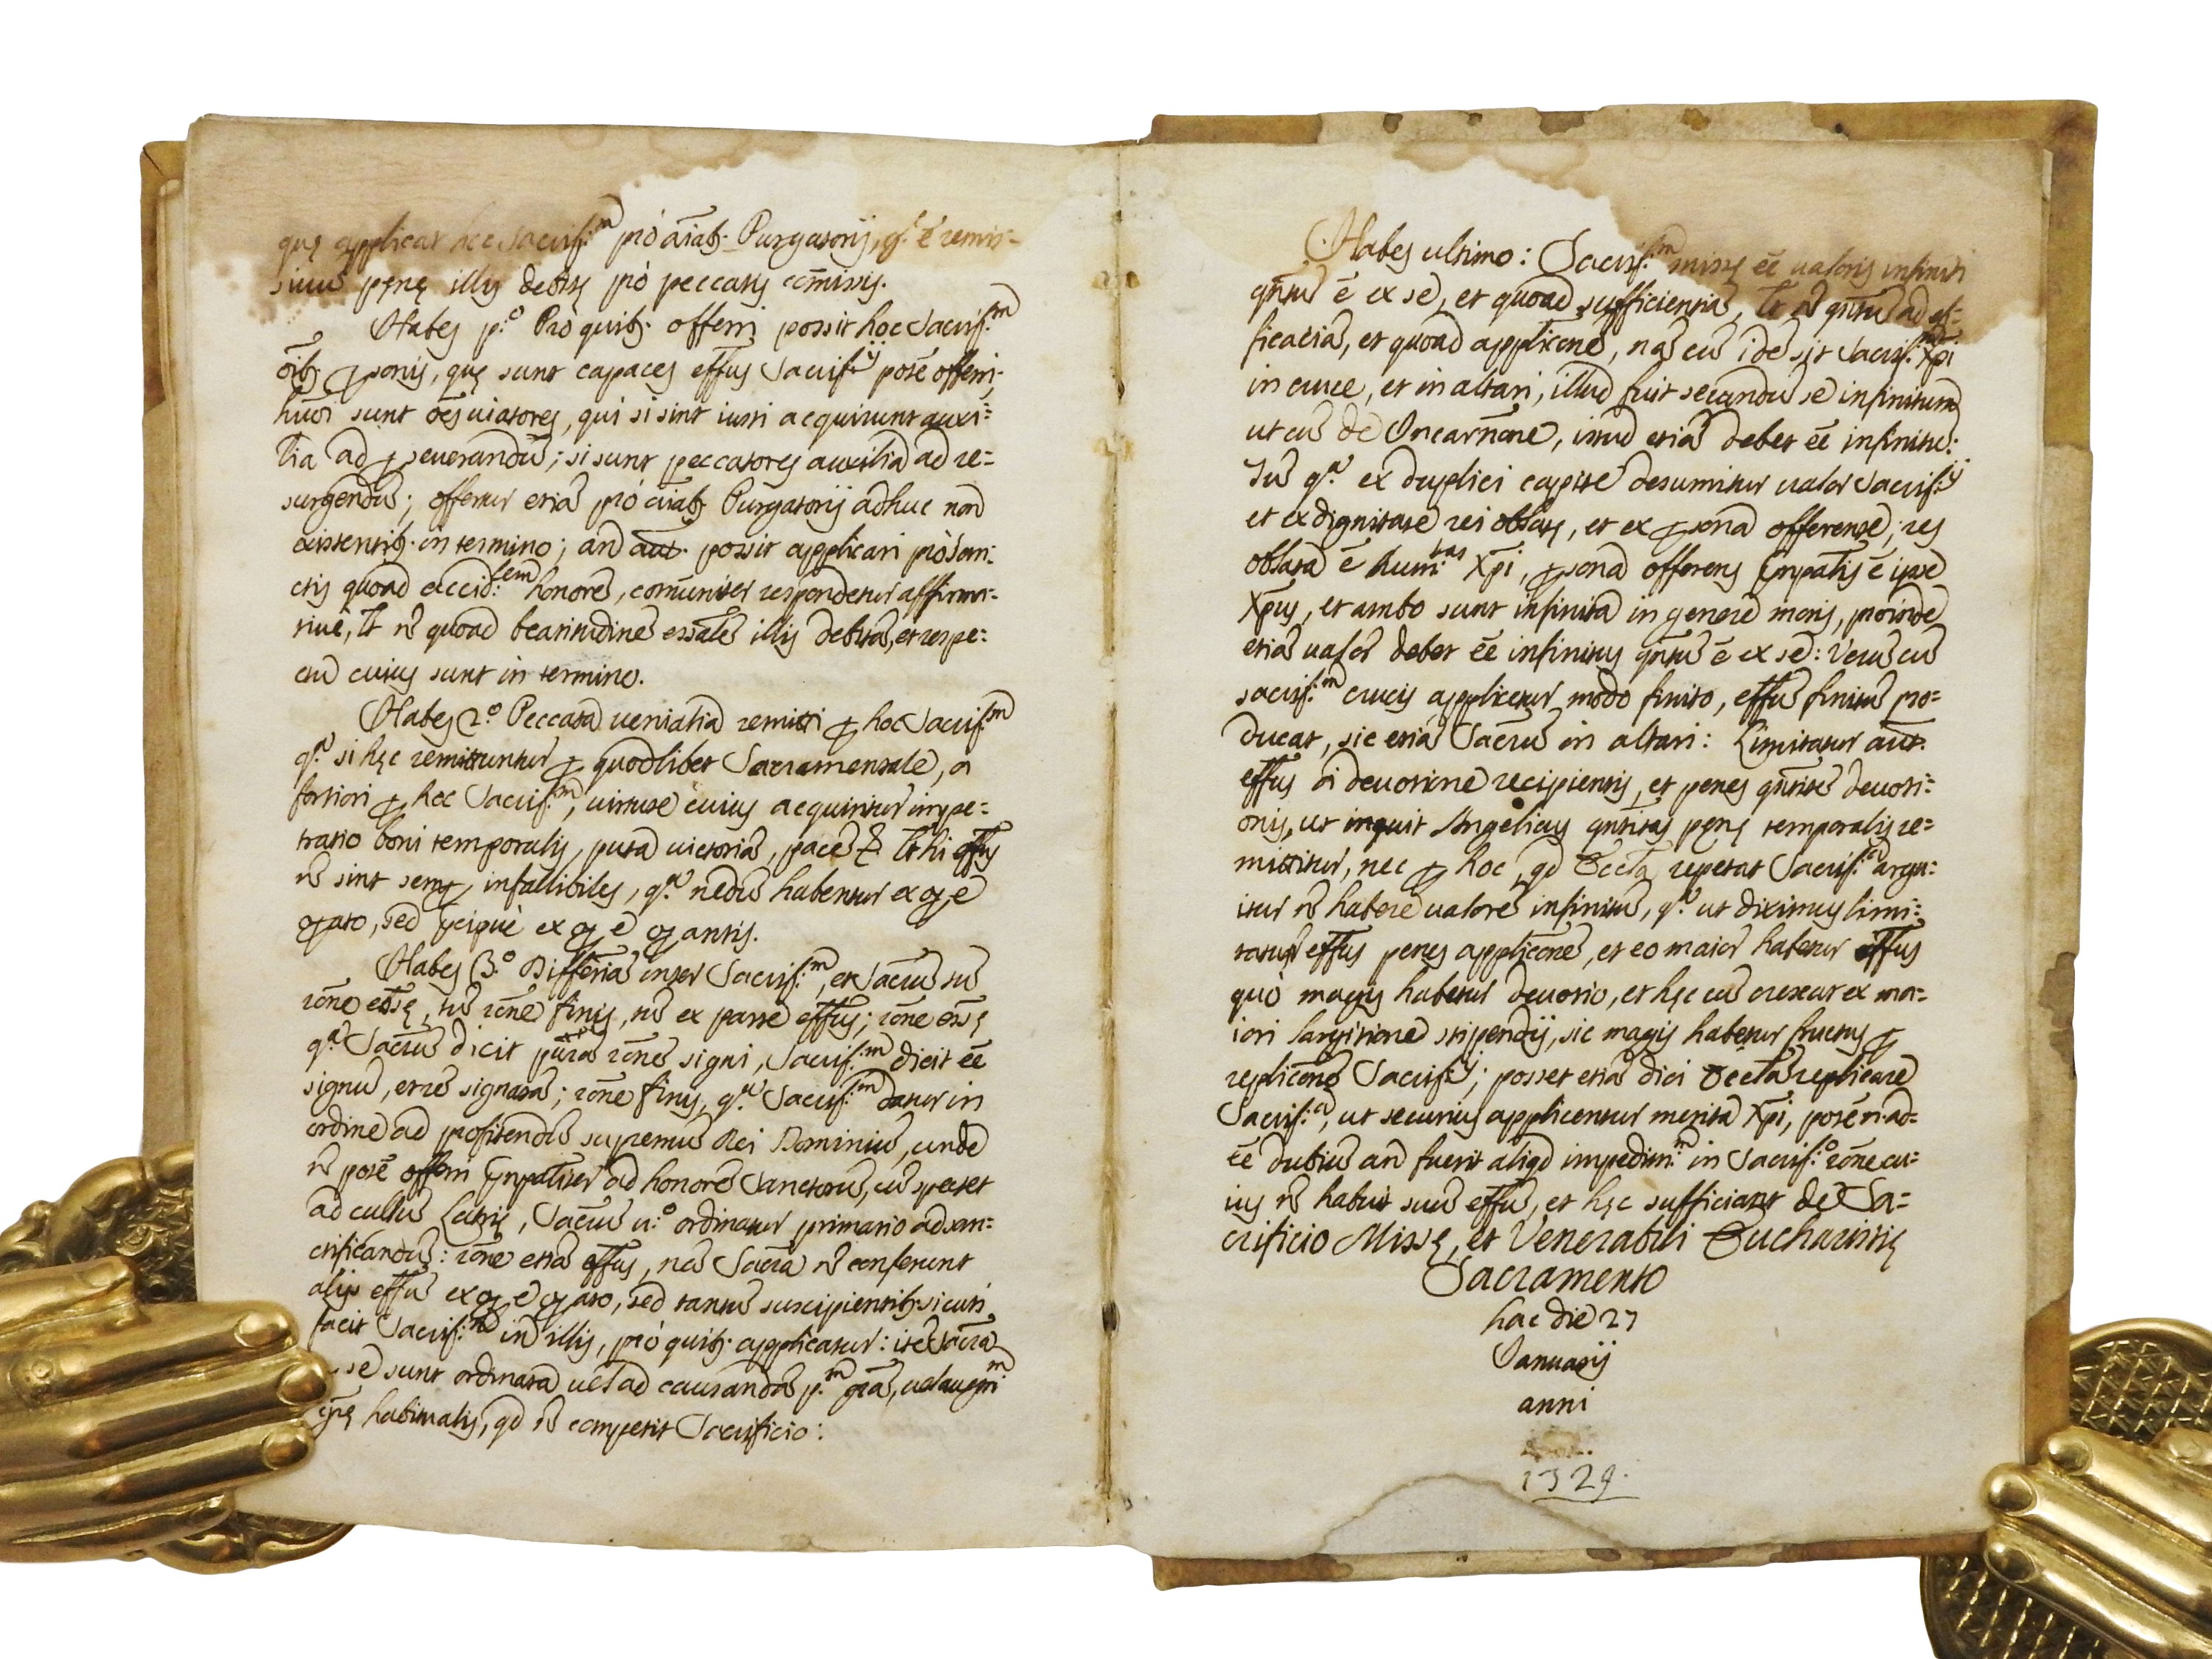 quę applicat hoc Sacrif:m prò aīab. Purgatorij, q.a ē remis-
siuū pęnę illis debitę prò peccatis cōmissis.
Habes p.o Prò quib. offerri possit hoc Sacrif:m
oīb. ꝑsonis, quę sunt capaces effūs Sacrif:ij posse offerri,
hūōi sunt oēs uiatores, qui si sint iusti acquirunt auxi-
lia ad ꝑseuerandū; si sunt peccatores auxilia ad re-
surgendū; offertur etiā prò aīab. Purgatorij adhuc non
existentib. in termino; an aut. possit applicari prò san-
ctis quoad accid:lem honorē, comūniter respondetur affirma-
tiuè, lt n̄ quoad beatitudinē essālē illis debitā, et respe-
ctu cuius sunt in termino.
Habes 2.o Peccata uenialia remitti ꝑ hoc Sacrif:m
q.a si hęc remittuntur ꝑ quodlibet Sacramentale, a
fortiori ꝑ hoc Sacrif:m, uirtute cuius acquiritur impe-
tratio boni temporalis, puta uictoriā, pacē &. lt hi effūs
n̄ sint semꝑ infallibiles, q.a nedū habentur ex oꝑe
oꝑato, sed p̄cipuè ex oꝑe oꝑantis.
Habes 3.o Differīā inter Sacrif:m, et Sacrū tū
rōne eōssę, tū rōne finis, tū ex parte effūs; rōne ēssę
q.a Sacrū dicit purā rōnē signi, Sacrif:m dicit ēē
signū, et rē signatā; rōne finis, q.a Sacrif:m datur in
ordine ad profitendū supremū Dei Dominiū, unde
n̄ posse offerri pn̄palīter ad honorē Sanctorū, cū spectet
ad cultū Latrię, Sacrū u.o ordinatur primario ad san-
ctificandū: rōne etiā effūs, nā Sacrā n̄ conferunt
alijs effū ex oꝑe oꝑato, sed tantū suscipientib. sicuti
facit Sacrif:m in illis, prò quib. applicatur: itē Sacrā
se sunt ordinata uel ad causandā p.m grā, uel augm:m
grę habitualis, qd n̄ competit Sacrificio:
Habes ultimo: Sacrif:m missę ēē ualoris infiniti
qn̄tū ē ex se, et quoad sufficientiā, lt n̄ qn̄tū ad ef-
ficaciā, et quoad applicōnē, nā cū idē sit Sacrif:m Xpi
in cruce, et in altari, illud fuit secundū se infinitum
ut cū de Incarnōne, istud etiā debet ēē infinitū:
Tū q.a ex duplici capite desumitur ualor Sacrif:ij
et ex dignitate rei oblatę, et ex ꝑsona offerente; res
oblata ē hum:tas Xpi, ꝑsona offerens pn̄palis ē ipse
Xpus, et ambo sunt infinita in genere moris, proinde
etiā ualor debet ēē infinitus qn̄tū ē ex se: Verū cū
sacrif:m crucis applicetur modo finito, effū finitū pro-
ducat, sic etiā Sacrū in altari: Limitatur aut.
effūs a deuotione recipientis, et penes qn̄titē deuoti-
onis, ut inquit Angelicus qn̄titas pęnę temporalis re-
mittitur, nec ꝑ hoc, qd Eccla repetat Sacrif:a argu-
itur n̄ habere ualorē infinitū, q.a ut diximus limi-
tatur effūs penes applicōnē, et eo maior habetur effūs
quò magis habetur deuotio, et hęc cū crescat ex ma-
iori largitione stipendij, sic magis habetur fructus ꝑ
replicōnē Sacrif:ij; posset etiā dici Ecclā replicare
Sacrif:a, ut securius applicentur merita Xpi, posse n. ad-
ēē dubiū an fuerit aliqd impedim:m in Sacrif:o rōne cu-
ius n̄ habuit suū effū, et hęc sufficiant de Sa-
crificio Missę, et Venerabili Eucharistię
Sacramento
hac die 27
Ianuarij
anni
1329.